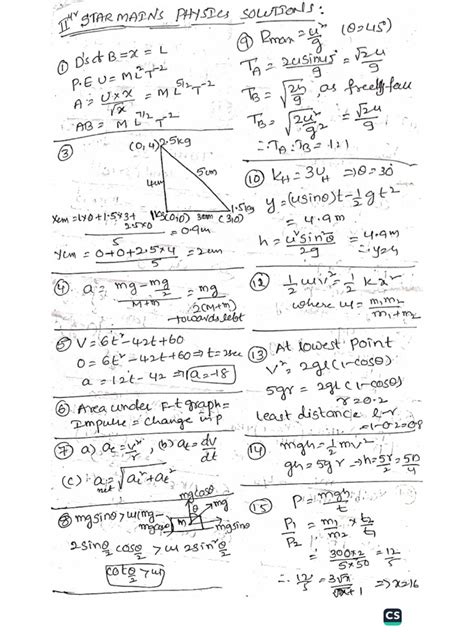 IInd STAR MAINS PHYSICS SOLUTIONS:
① D's of B = x = L
P.E U = M L² T⁻²
A = U×x/√x = M L^5/2 T⁻²
AB = M L^7/2 T⁻²
③ (0,4) 2.5kg
4cm 5cm
1kg (0,0) 3cm (3,0) 1.5kg
Xcm = 1×0 + 1.5×3 + 2.5×0 / 5 = 0.9m
Ycm = 0+0+2.5×4 / 5 = 2cm
④ a = mg - mg/2 / M+m = mg / 2(M+m)
towards left
⑤ V = 6t² - 42t + 60
0 = 6t² - 42t + 60 ⇒ t = 2sec
a = 12t - 42 ⇒ a = -18
⑥ Area under F-t graph =
Impulse = change in p
⑦ a) ac = v²/r, (b) at = dv/dt
(c) a net = √ac² + at²
⑧ mg sinθ > μ(mg -
mg cosθ)
mg cosθ mg
θ
m mg sinθ
2 sin θ/2 cos θ/2 > μ 2 sin² θ/2
cot θ/2 > μ
⑨ Rmax = u²/g (θ=45°)
TA = 2u sin45°/g = √2u/g
TB = √2h/g, as freely fall
TB = √2u²/g² = √2u/g
∴ TA : TB = 1:1
⑩ KH = 3UH ⇒ θ = 30
y = (u sinθ)t - ½gt²
= 4.9m
h = u² sin²θ/2g = 4.9m
∴ y = h
⑫ ½ μv² = ½ kx²
where μ = m₁m₂/m₁+m₂
⑬ At lowest Point
V² = 2gl(1-cosθ)
5gr = 2gl(1-cosθ)
r = 0.2
least distance l-r
= 1-0.2 = 0.8
⑭ mgh = ½ mv²
gh = 5gr ⇒ h = 5r/2 = 5D/4
⑮ P = mgh/t
P₁/P₂ = m₁/m₂ × t₂/t₁
= 300×2/5×50 = 12/5
∴ 12/5 = 3√x/√x+1 ⇒ x = 16
CS